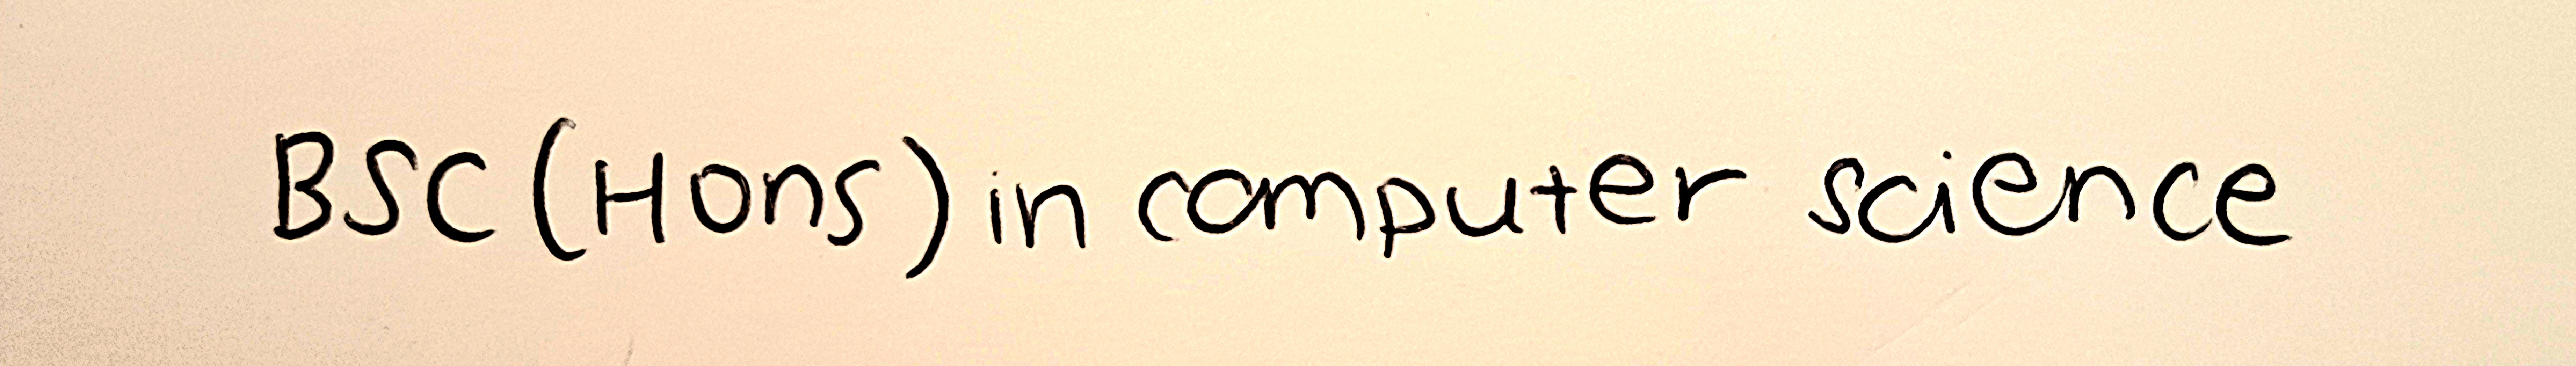 BSC (Hons) in computer science